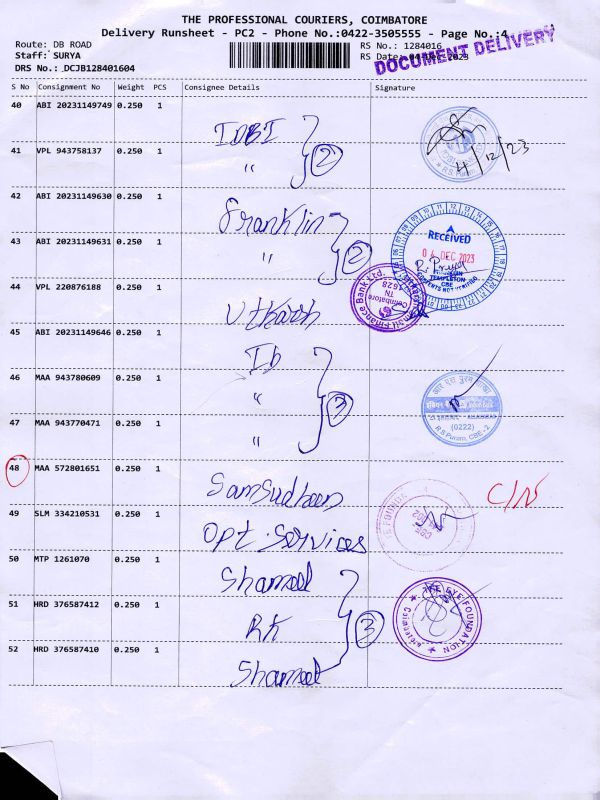 THE PROFESSIONAL COURIERS, COIMBATORE
Delivery Runsheet - PC2 - Phone No.:0422-3505555 - Page No.:4
Route: DB ROAD
RS No.: 1284016
Staff: SURYA
RS Date: 04 Dec 2023
DOCUMENT DELIVERY
DRS No.: DCJB128401604
S No Consignment No Weight PCS Consignee Details Signature
40 ABI 20231149749 0.250 1
IDBI
4/12/23
41 VPL 943758137 0.250 1
" 2
R.S. Puram
42 ABI 20231149630 0.250 1
Franklin
RECEIVED
04 DEC 2023
43 ABI 20231149631 0.250 1
" 2
TEMPLETON
CBE
44 VPL 220876188 0.250 1
Utkarsh
Finance Bank Ltd.
Coimbatore
TN
1628
45 ABI 20231149646 0.250 1
Ib
46 MAA 943780609 0.250 1
" 3
(0222)
R S Puram, CBE - 2
47 MAA 943770471 0.250 1
"
48 MAA 572801651 0.250 1
Samsudeen
C/N
49 SLM 334210531 0.250 1
Opt. Services
50 MTP 1261070 0.250 1
Shameel
THE EYE FOUNDATION
Coimbatore
51 HRD 376587412 0.250 1
RK 3
52 HRD 376587410 0.250 1
Shameel